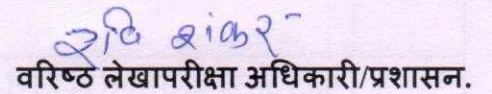 रवि शंकर
वरिष्ठ लेखापरीक्षा अधिकारी/प्रशासन.